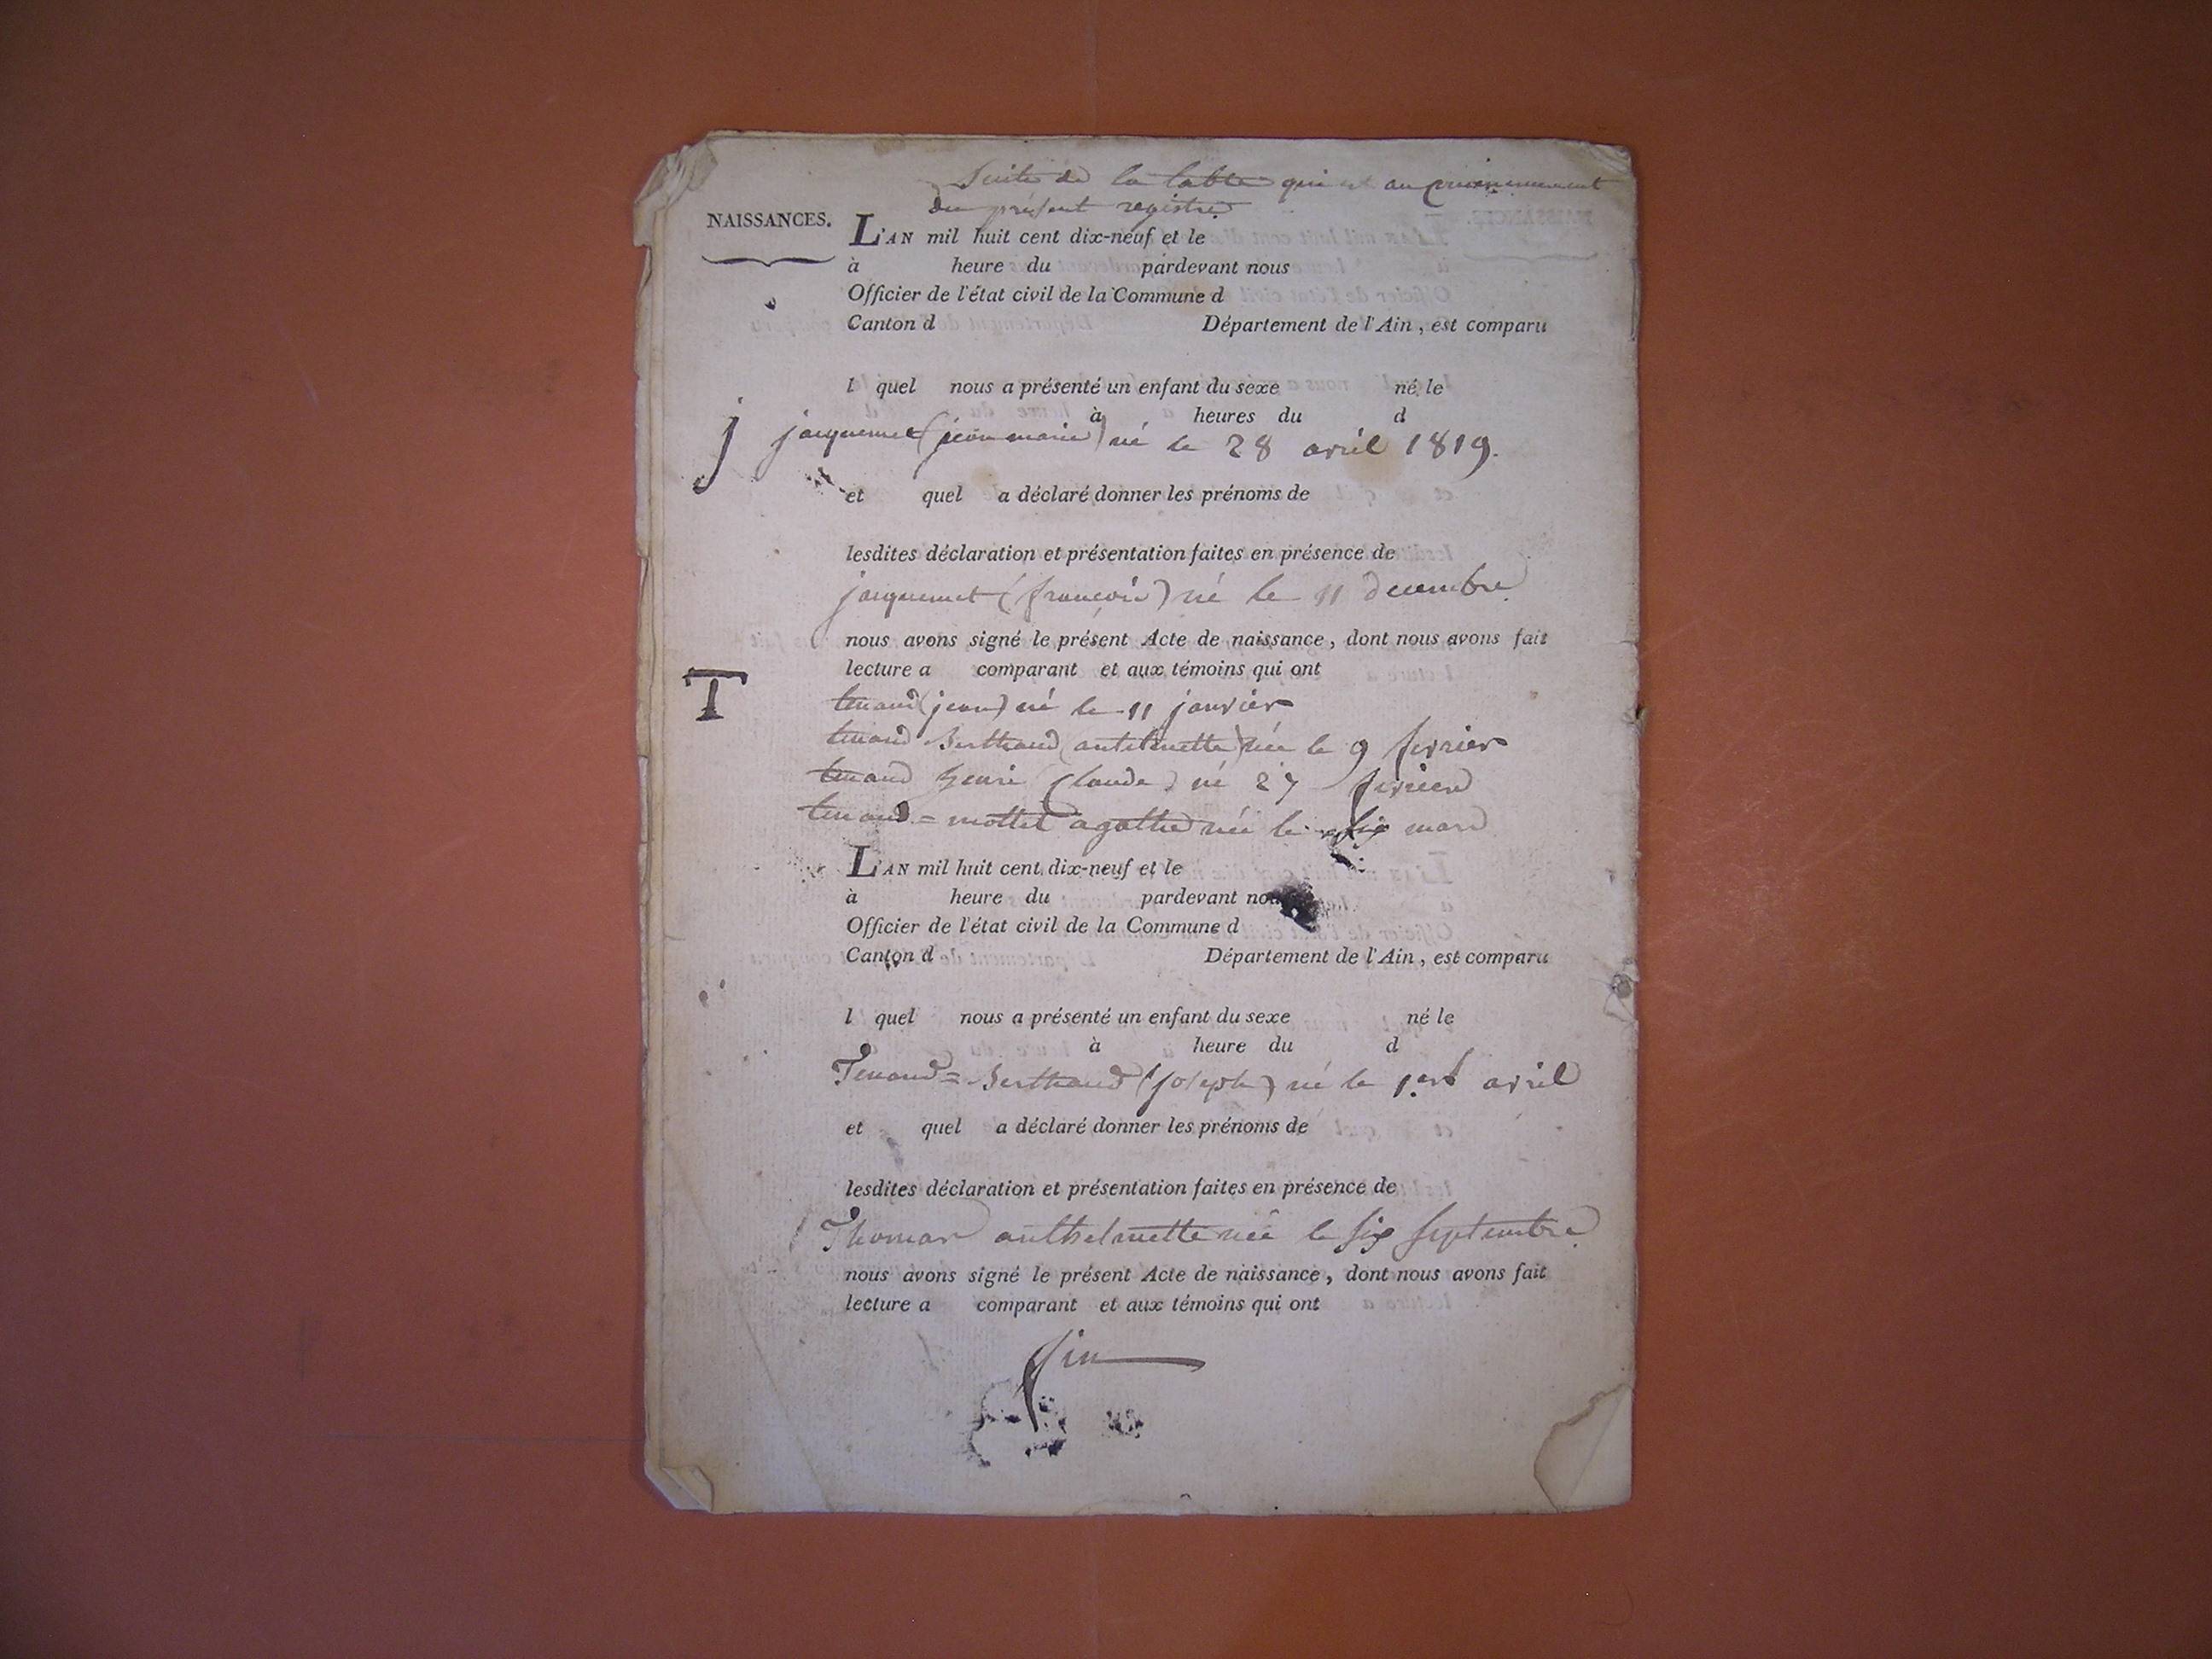 Suite de la table qui est au commencement
du présent registre
NAISSANCES.
L'AN mil huit cent dix-neuf et le
à heure du pardevant nous
Officier de l'état civil de la Commune d
Canton d Département de l'Ain, est comparu
l quel nous a présenté un enfant du sexe né le
à heures du d
j jacquemet (jean marie) né le 28 avril 1819.
et quel a déclaré donner les prénoms de
lesdites déclaration et présentation faites en présence de
jacquemet (françois) né le 11 decembre
nous avons signé le présent Acte de naissance, dont nous avons fait
lecture a comparant et aux témoins qui ont
T
tenand (jean) né le 11 janvier
tenand Berthaud (antelmette) née le 9 fevrier
tenand henri (claude) né 27 fevrier
tenand = mottet agathe née le six mars
L'AN mil huit cent dix-neuf et le
à heure du pardevant nous
Officier de l'état civil de la Commune d
Canton d Département de l'Ain, est comparu
l quel nous a présenté un enfant du sexe né le
à heure du d
Tenand = Berthaud (joseph) né le 1.er avril
et quel a déclaré donner les prénoms de
lesdites déclaration et présentation faites en présence de
Thomas anthelmette née le six septembre
nous avons signé le présent Acte de naissance, dont nous avons fait
lecture a comparant et aux témoins qui ont
fin